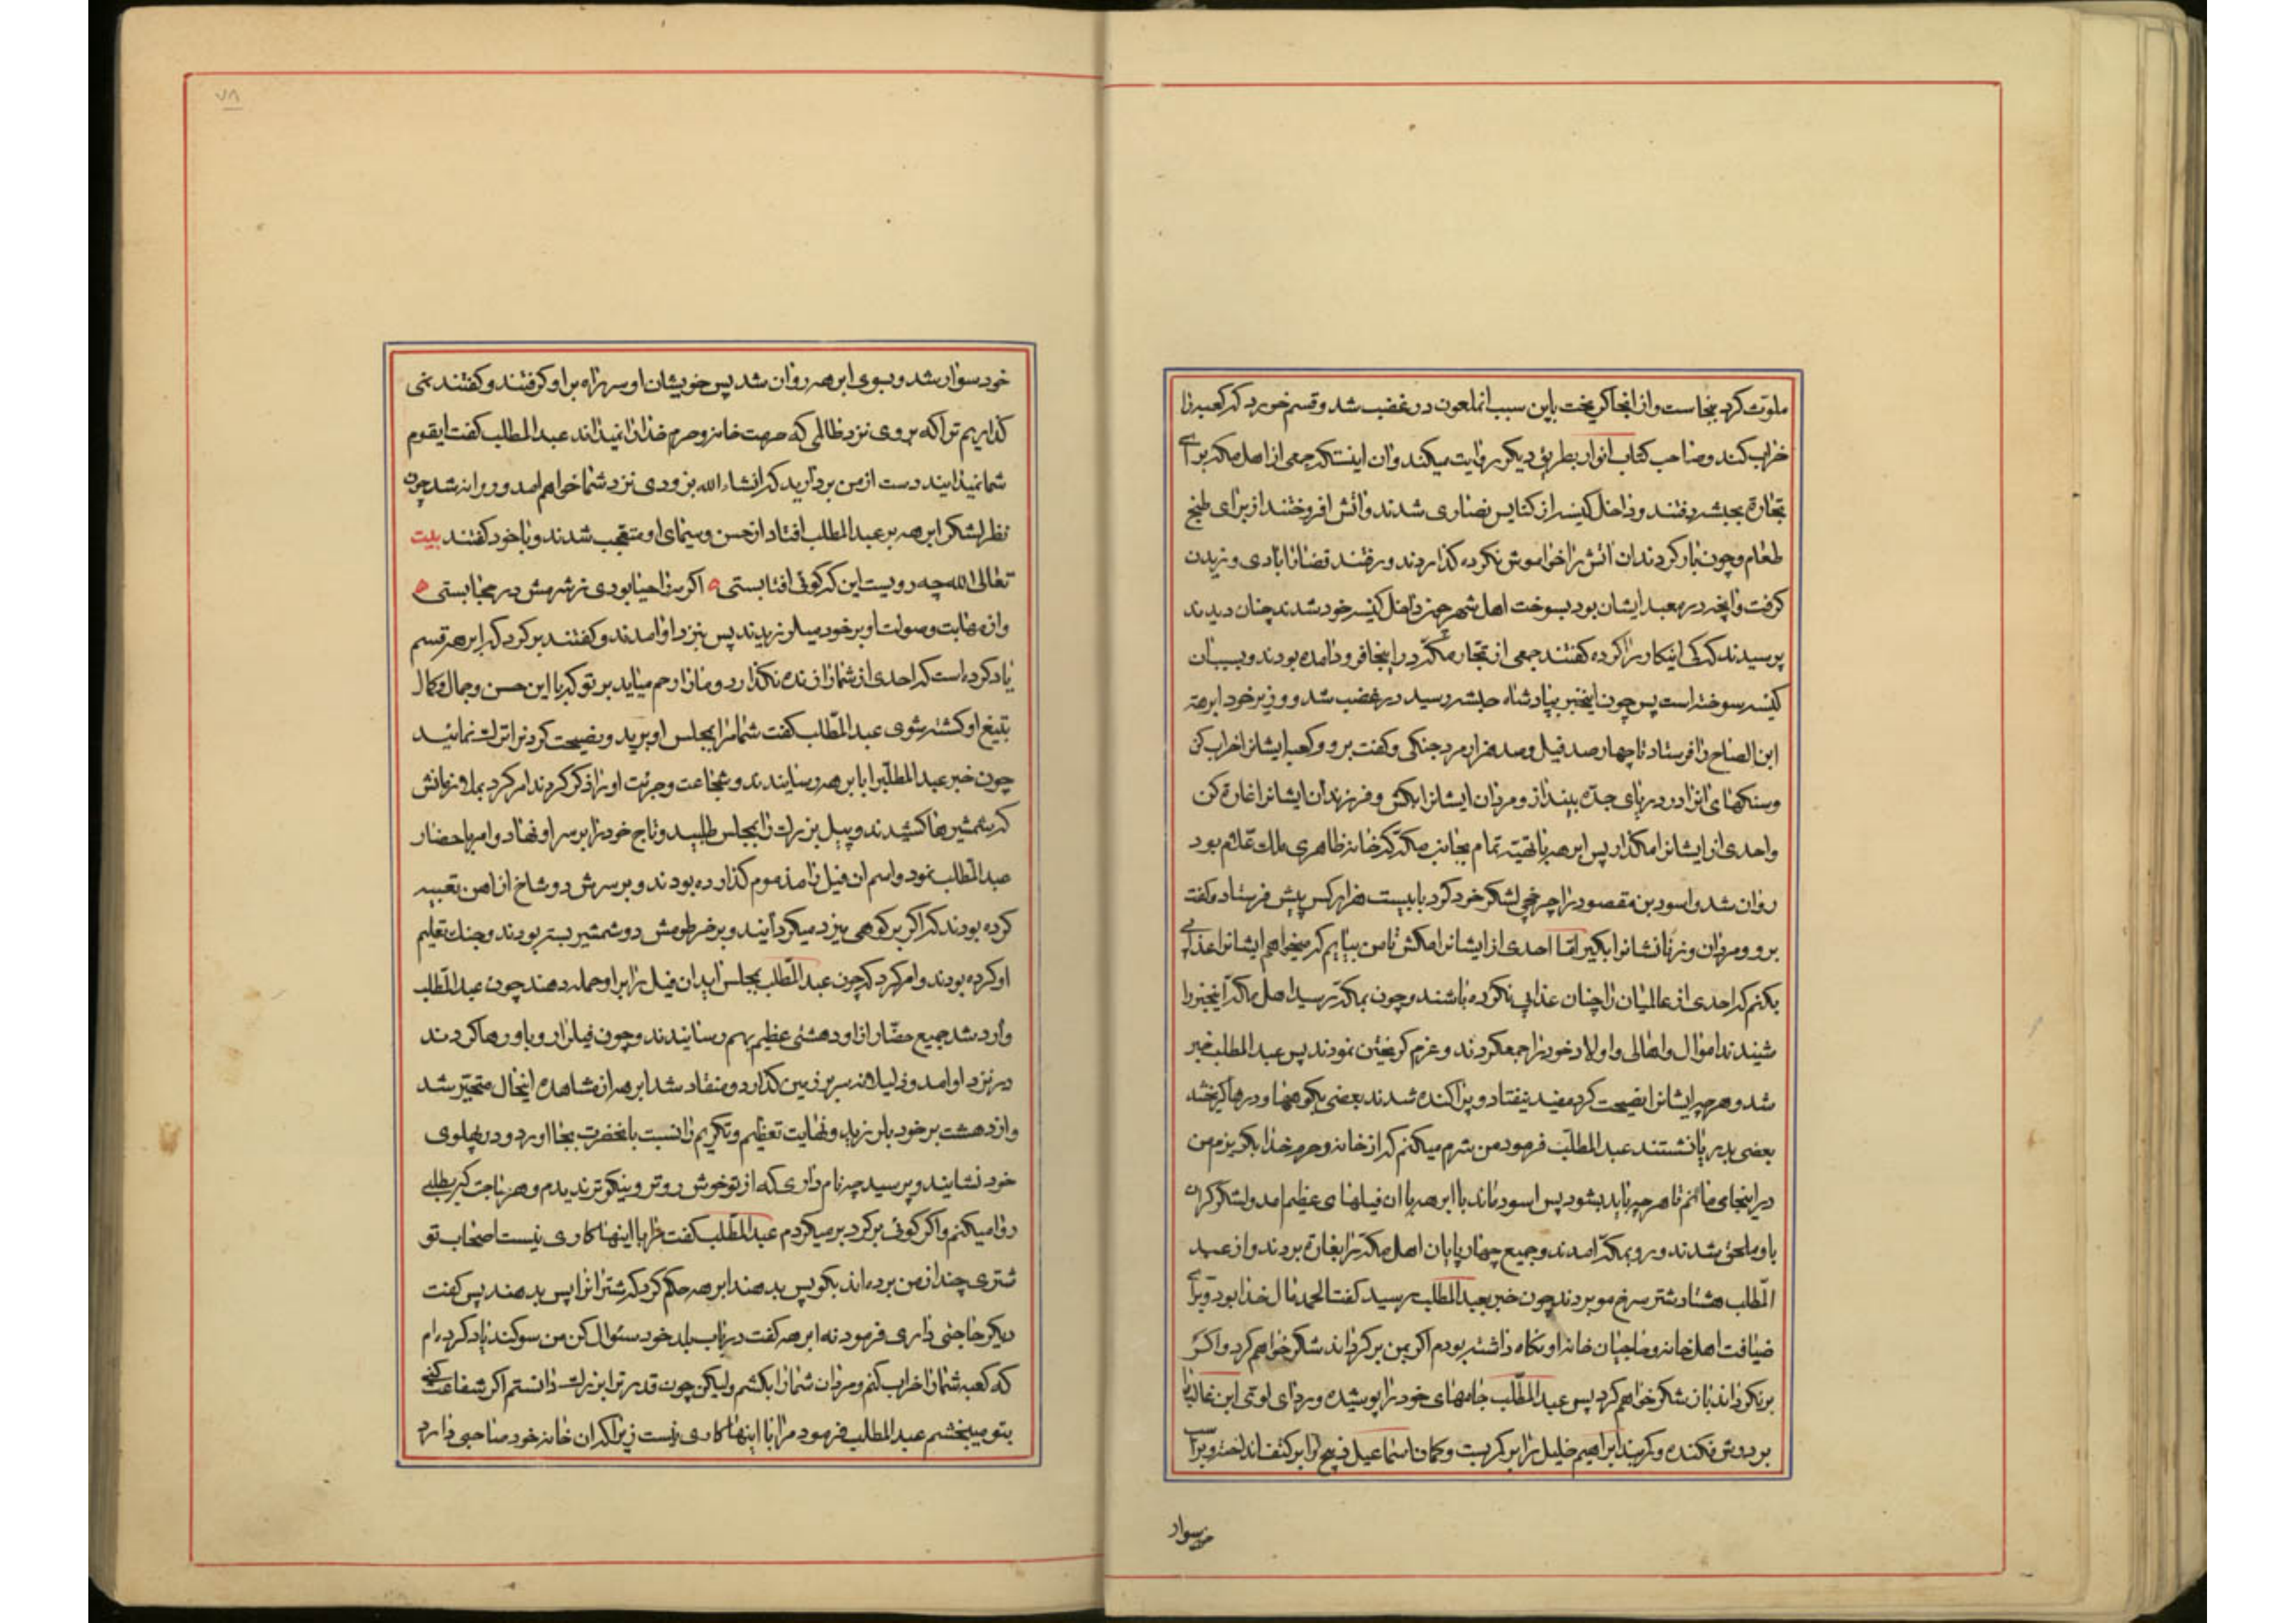 ملوث کرد بنجاست و از انجا کریخت باین سبب انملعون در غضب شد و قسم خورد که کعبه را
خراب کند و صاحب کتاب انوار بطریق دیکر روایت میکند و ان اینست که جمعی از اهل مکه برای
تجارة بحبشه رفتند و داخل کنیسه از کنایس نصاری شدند و اتش افروختند از برای طبخ
طعام و چون بار کردند ان اتش را خواموش نکرده کذاردند و رفتند قضا را بادی وزیدن
کرفت و انچه در معبد ایشان بود بسوخت اهل شهر چون داخل کنیسه خود شدند چنان دیدند
پرسیدند که کی اینکار را کرده کفتند جمعی از تجار مکه در اینجا فرود امده بودند و بسبب ان
کنیسه سوخته است پس چون اینخبر بپادشاه حبشه رسید در غضب شد و وزیر خود ابرهة
ابن الصباح را فرستاد با چهار صد فیل و صد هزار مرد جنکی و کفت برو و کعبه ایشانرا خراب کن
و سنکهای انرا در دریای جده بینداز و مردان ایشانرا بکش و فرزندان ایشانرا غارة کن
و احدی از ایشانرا مکذار پس ابرهه با تهیه تمام بجانب مکه که خانه ظاهری ملک علام بود
روان شد و اسود بن مقصود را چرخچی لشکر خود کرد با بیست هزار کس پیش فرستاد و کفت
برو و مردان و زنانشانرا بکیر اما احدی از ایشانرا مکش تا من بیایم که میخواهم ایشانرا عذابی
بکنم که احدی از عالمیان را چنان عذابی نکرده باشند و چون بمکه رسید اهل مکه اینخبر را
شنیدند اموال و اهالی و اولاد خود را جمعکردند و عزم کریختن نمودند پس عبد المطلب خبر
شد و هرچه ایشانرا نصیحت کرد مفید نیفتاد و پراکنده شدند بعضی بکوهها و درها کریختند
بعضی بدریا نشستند عبد المطلب فرمود من شرم میکنم که از خانه و حرم خدا بکریزم من
در اینجا میمانم تا هرچه باید بشود پس اسود ماند با ابرهه با ان فیلهای عظیم امد و لشکر کران
باو ملحق شدند و رو بمکه امدند و جمیع چهارپایان اهل مکه را بغارة بردند و از عبد
المطلب هشتاد شتر سرخ مو بردند چون خبر بعبد المطلب رسید کفت الحمد مال خدا بود و برای
ضیافت اهل خانه و حاجیان خانه او نکاه داشته بودم اکر بمن برکرداند شکر خواهم کرد و اکر
برنکرداند بان شکر خواهم کرد پس عبد المطلب جامهای خود را پوشیده و ردای لوی ابن غالب را
بر دوش فکنده و کمربند ابراهیم خلیل را بر کمر بست و کمان اسماعیل ذبیح را بر کتف انداخت و بر اسب
سوار
خود سوار شد و بسوی ابرهه روان شد پس خویشان او سر راه بر او کرفتند و کفتند نمی
کذاریم ترا که بروی نزد ظالمی که حرمت خانه و حرم خدا را نمیداند عبد المطلب کفت ایقوم
شما نمیدانید دست از من بردارید که انشاء الله بزودی نزد شما خواهم امد و روانه شد چون
نظر لشکر ابرهه بر عبد المطلب افتاد از حسن و سیمای او متعجب شدند و با خود کفتند بیت
تعالی الله چه رویست این که کوئی افتابستی ه اکر مه را حیا بودی ز شرمش در حجابستی ه
و از مهابت و صولت او بر خود میلرزیدند پس بنزد او امدند و کفتند برکرد که ابرهه قسم
یاد کرده است که احدی از شما را زنده نکذارد و ما را رحم میاید بر تو که با این حسن و جمال و کمال
بتیغ او کشته شوی عبد المطلب کفت شما مرا بمجلس او برید و نصیحت کردنرا ترک نمائید
چون خبر عبد المطلبرا بابرهه رسانیدند و شجاعت و جرئت او را ذکر کردند امر کرد بملازمانش
که شمشیرها کشیدند و پیل بزرک را بمجلس طلبید و تاج خود را بر سر او نهاد و امر باحضار
عبد المطلب نمود و اسم ان فیل را مذموم کذارده بودند و بر سرش دو شاخ از اهن تعبیه
کرده بودند که اکر بر کوهی میزد میکردانید و بر خرطومش دو شمشیر بسته بودند و جنک تعلیم
او کرده بودند و امر کرد که چون عبد المطلب بمجلس اید ان فیل را بر او حمله دهند چون عبد المطلب
وارد شد جمیع حضار از او دهشتی عظیم بهم رسانیدند و چون فیلرا رو باو رها کردند
در نزد او امد و ذلیلانه سر بر زمین کذارد و منقاد شد ابرهه از مشاهده اینحال متحیر شد
و از دهشت بر خود بلرزید و نهایت تعظیم و تکریم را نسبت بانحضرت بجا اورد و در پهلوی
خود نشانید و پرسید چه نام داری که از تو خوش روتر و نیکوتر ندیدم و هر حاجت که بطلبی
روا میکنم و اکر کوئی برکرد برمیکردم عبد المطلب کفت مرا با اینها کاری نیست اصحاب تو
شتری چند از من برده اند بکو پس بدهند ابرهه حکم کرد که شترانرا پس بدهند پس کفت
دیکر حاجتی داری فرمود نه ابرهه کفت در باب بلد خود سئوال کن من سوکند یاد کرده ام
که کعبه شما را خراب کنم و مردان شما را بکشم ولیکن چون قدر ترا بزرک دانستم اکر شفاعت کنی
بتو میبخشم عبد المطلب فرمود مرا با اینها کاری نیست زیرا که ان خانه خود صاحبی دارد